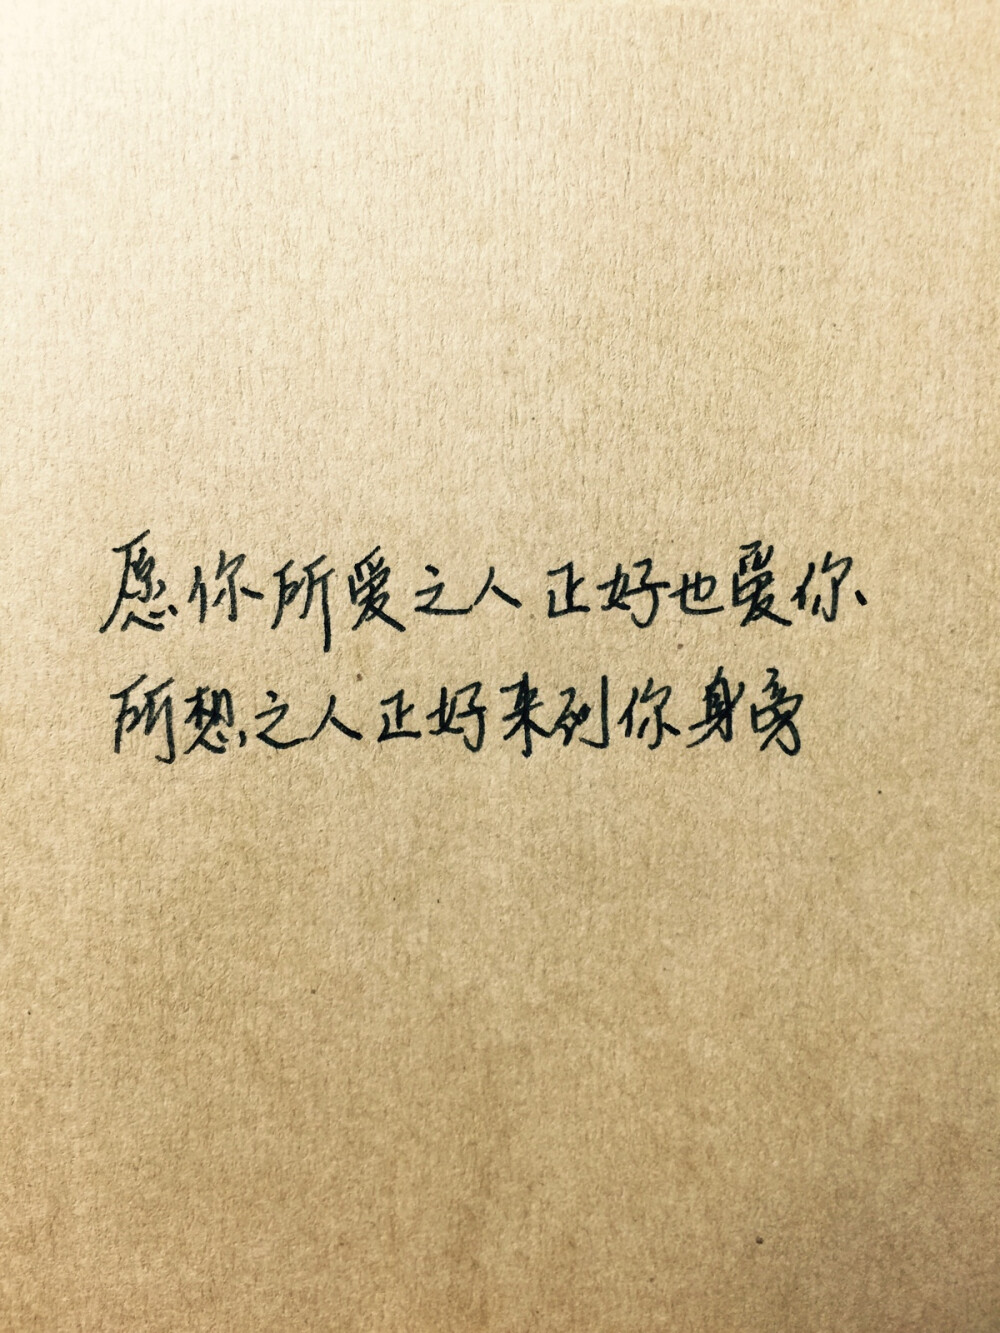 愿你所爱之人正好也爱你
所想之人正好来到你身旁